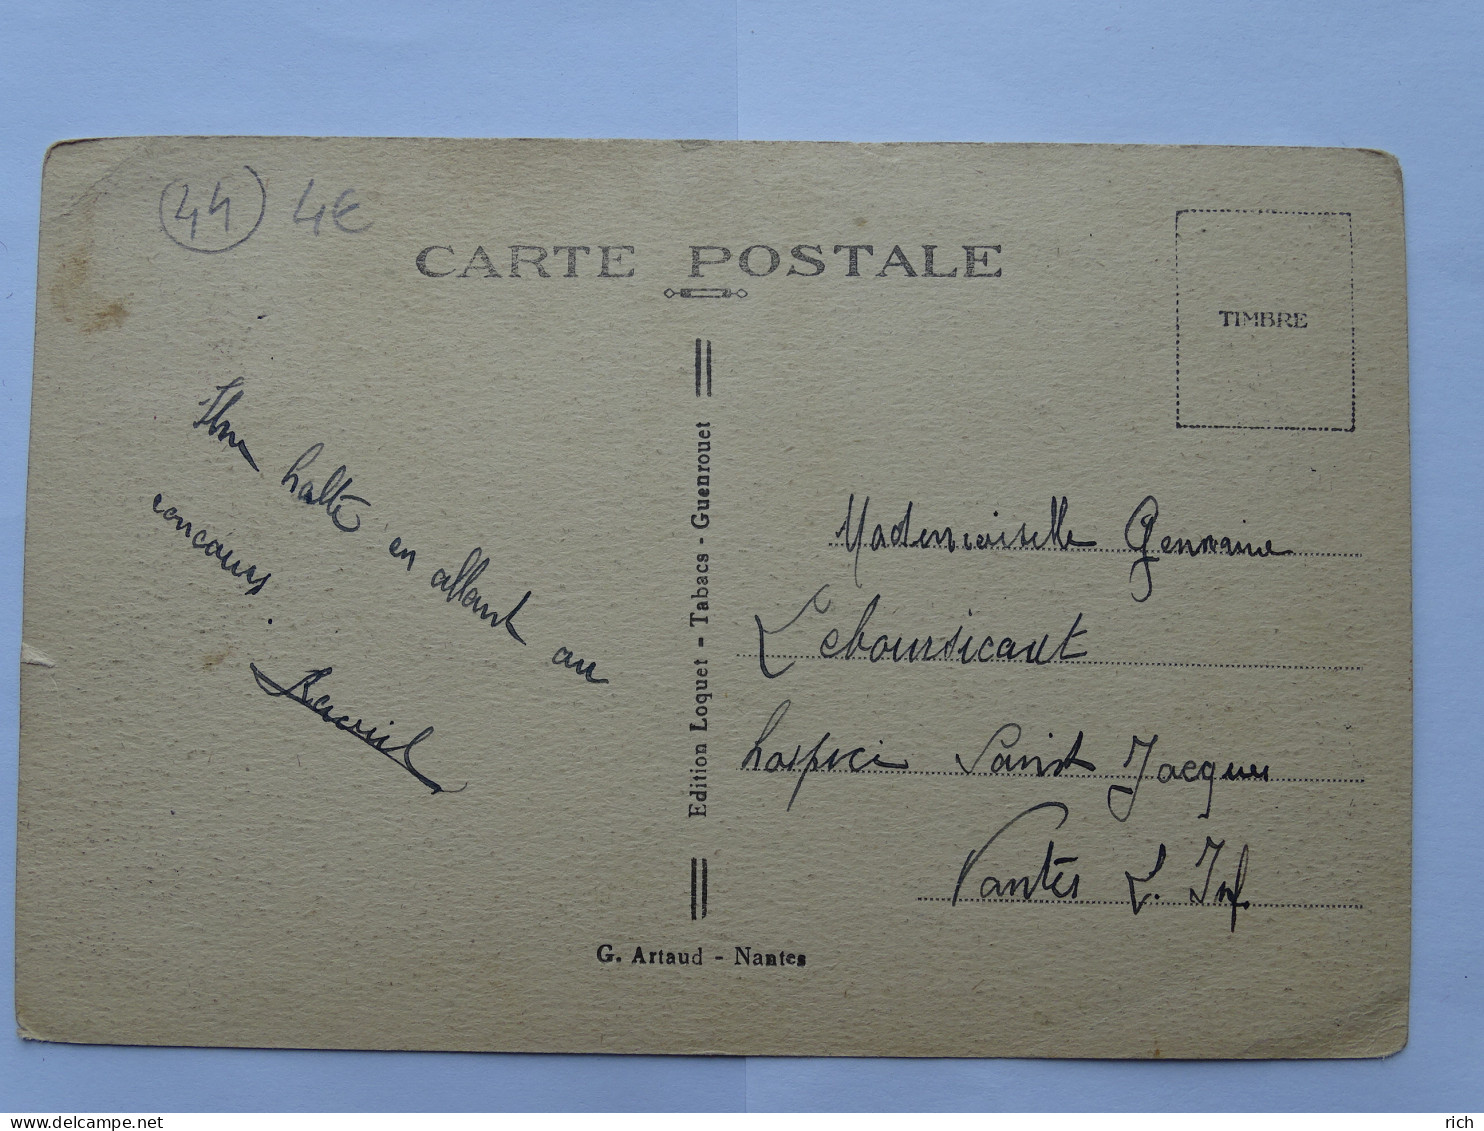 44 4€
CARTE POSTALE
TIMBRE
Une halte en allant au
concours.
Edition Loquet - Tabacs - Guenrouet
Mademoiselle Germaine
Leboursicaut
hospice Saint Jacques
Nantes L. Inf.
G. Artaud - Nantes
delcampe.net
rich